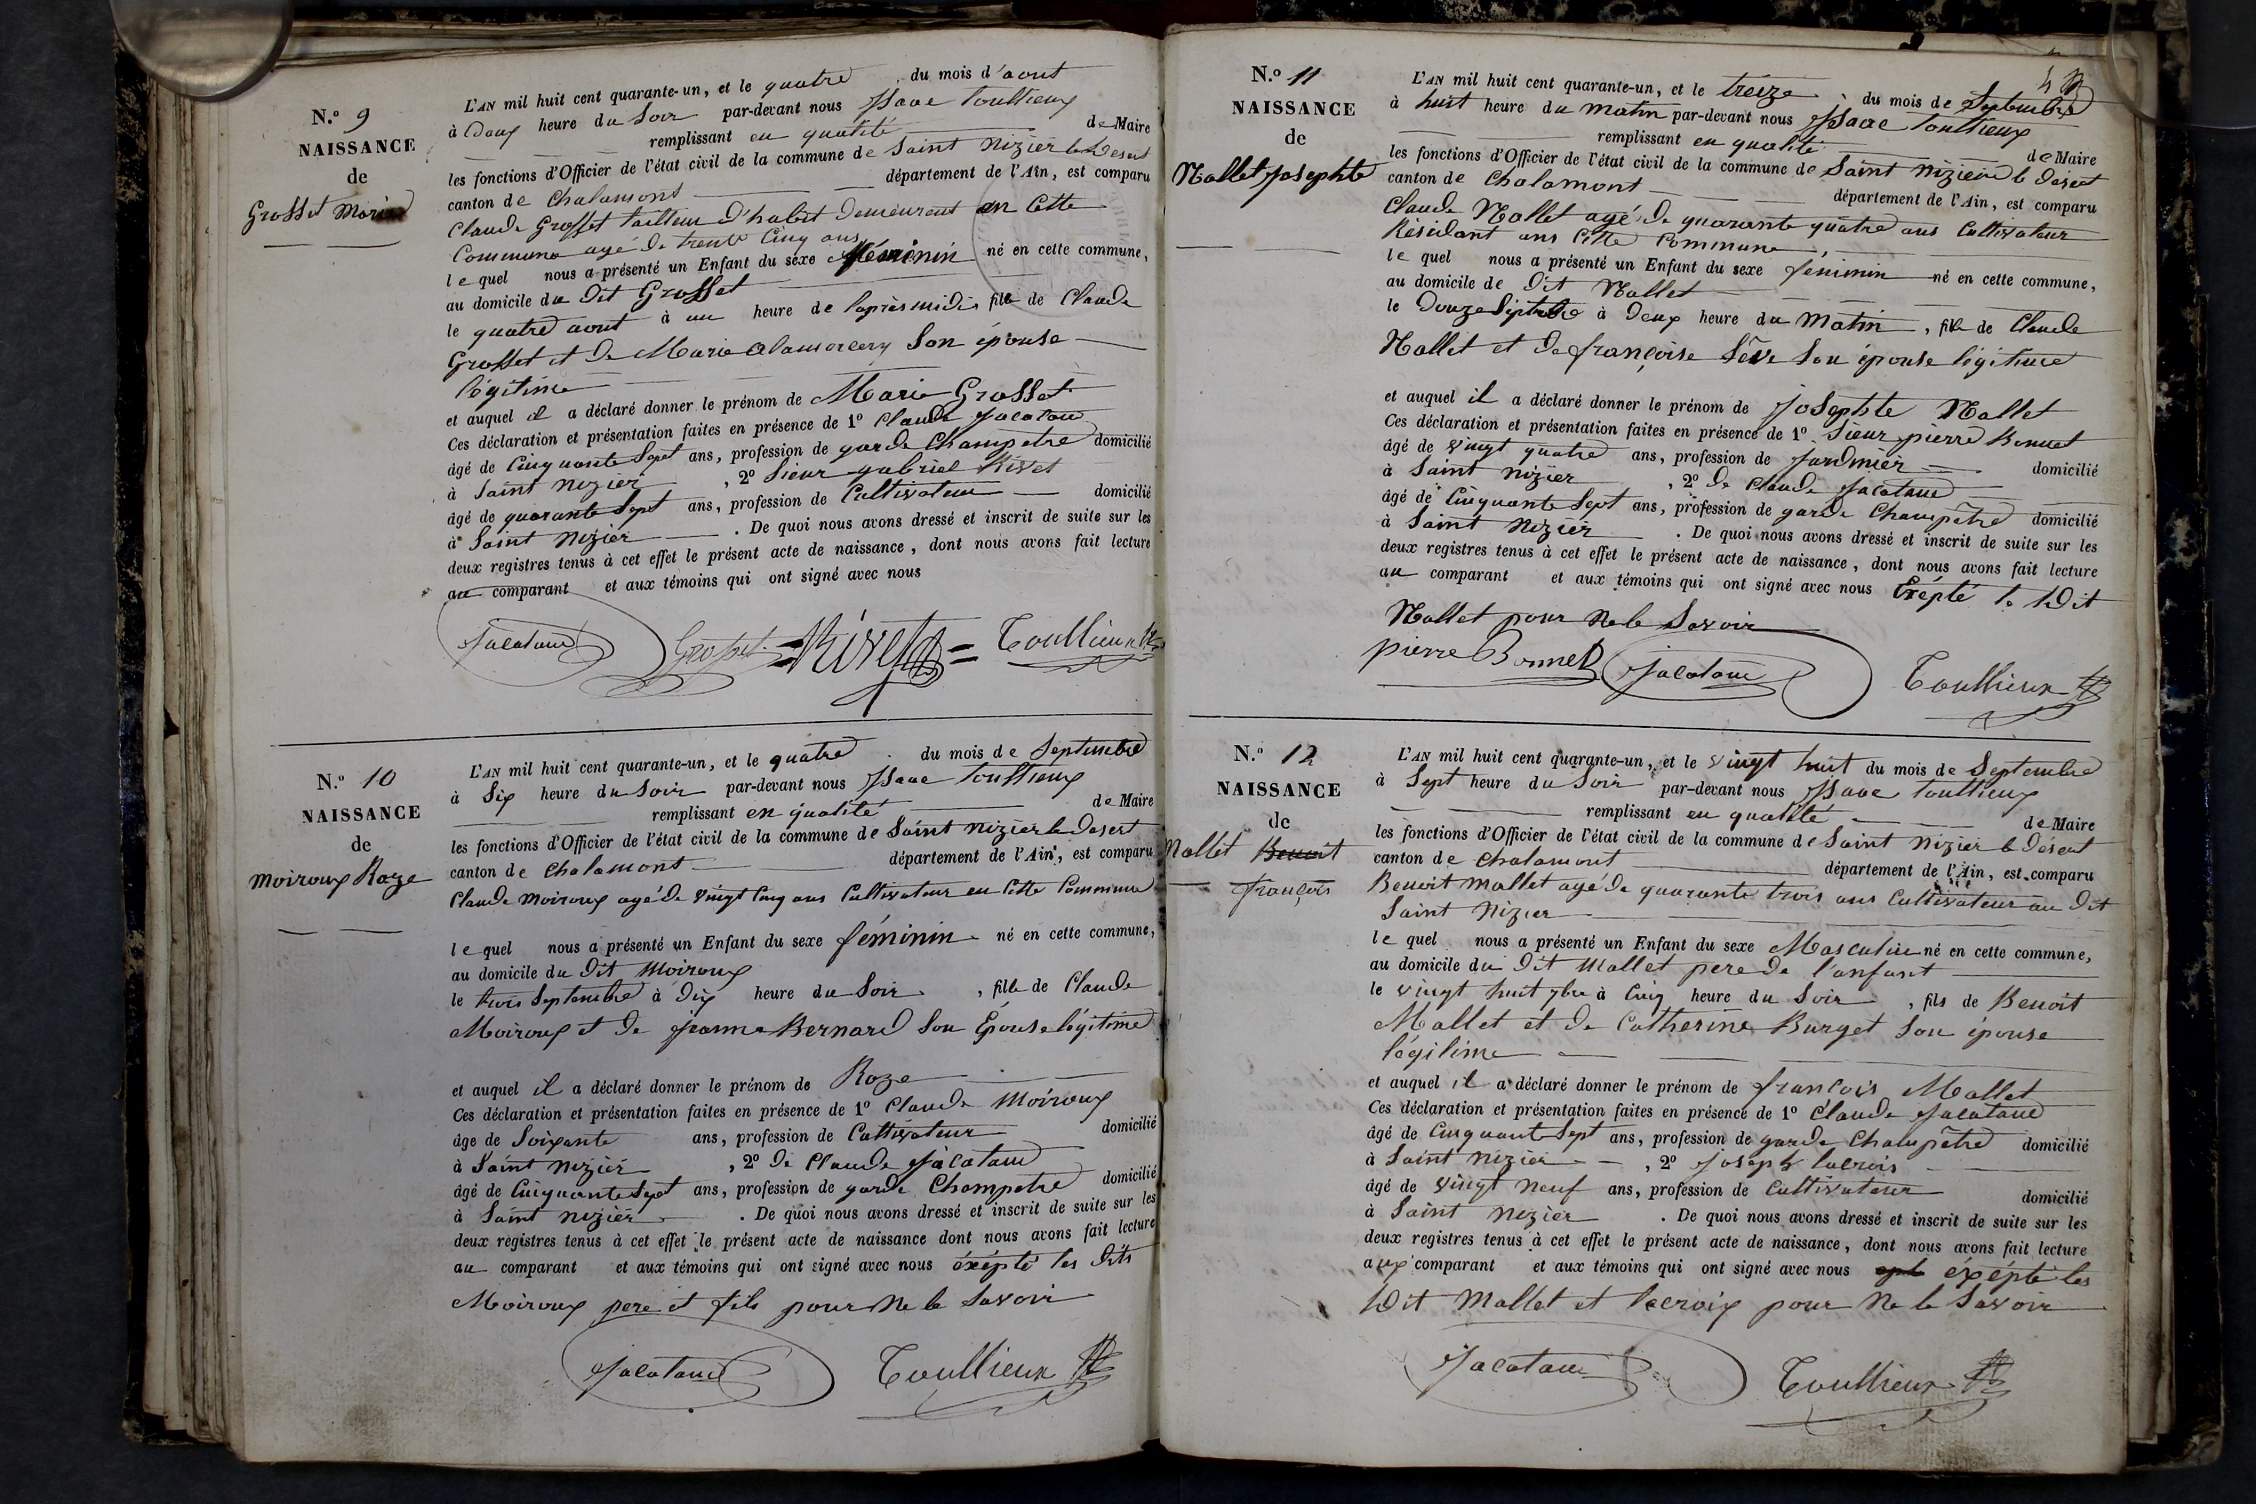 N.º 9
NAISSANCE
de
Grosset Marie
L'AN mil huit cent quarante-un, et le quatre du mois d'aout
à Deux heure du Soir par-devant nous Isaac Toullieux
remplissant en qualité de Maire
les fonctions d'Officier de l'état civil de la commune de Saint Nizier le Desert
canton de Chalamont département de l'Ain, est comparu
Claude Grosset tailleur d'habit demeurant en Cette
Commune agé de trente Cinq ans
le quel nous a présenté un Enfant du sexe féminin né en cette commune,
au domicile du Dit Grosset
le quatre aout à un heure de l'aprèsmidi, fille de Claude
Grosset et de Marie Son épouse
légitime
et auquel il a déclaré donner le prénom de Marie Grosset
Ces déclaration et présentation faites en présence de 1º Claude Jacatau
âgé de Cinquante Sept ans, profession de garde Champetre domicilié
à Saint Nizier, 2º Sieur gabriel Rivet
âgé de quarante Sept ans, profession de Cultivateur domicilié
à Saint Nizier. De quoi nous avons dressé et inscrit de suite sur les
deux registres tenus à cet effet le présent acte de naissance, dont nous avons fait lecture
au comparant et aux témoins qui ont signé avec nous
Jacatau Grosset Rivet Toullieux
N.º 10
NAISSANCE
de
Moiroux Roze
L'AN mil huit cent quarante-un, et le quatre du mois de Septembre
à Six heure du Soir par-devant nous Isaac Toullieux
remplissant en qualité de Maire
les fonctions d'Officier de l'état civil de la commune de Saint Nizier le Desert
canton de Chalamont département de l'Ain, est comparu
Claude Moiroux agé de Vingt Cinq ans Cultivateur en Cette Commune
le quel nous a présenté un Enfant du sexe féminin né en cette commune,
au domicile du Dit Moiroux
le trois Septembre à Dix heure du Soir, fille de Claude
Moiroux et de Jeanne Bernard Son Épouse légitime
et auquel il a déclaré donner le prénom de Roze
Ces déclaration et présentation faites en présence de 1º Claude Moiroux
âge de Soixante ans, profession de Cultivateur domicilié
à Saint Nizier, 2º De Claude Jacatau
âgé de Cinquante Sept ans, profession de garde Champetre domicilié
à Saint Nizier. De quoi nous avons dressé et inscrit de suite sur les
deux registres tenus à cet effet le présent acte de naissance dont nous avons fait lecture
au comparant et aux témoins qui ont signé avec nous éxépté les Dits
Moiroux pere et fils pour Ne le Savoir
Jacatau Toullieux
N.º 11
NAISSANCE
de
Mallet Josephte
L'AN mil huit cent quarante-un, et le treize du mois de Septembre
à huit heure du Matin par-devant nous Isaac Toullieux
remplissant en qualité de Maire
les fonctions d'Officier de l'état civil de la commune de Saint Nizier le Désert
canton de Chalamont département de l'Ain, est comparu
Claude Mallet agé de quarante quatre ans Cultivateur
Résidant ans Cette Commune
le quel nous a présenté un Enfant du sexe féminin né en cette commune,
au domicile de Dit Mallet
le Douze Septembre à Deux heure du Matin, fille de Claude
Mallet et de françoise Sève Son épouse légitime
et auquel il a déclaré donner le prénom de Josephte Mallet
Ces déclaration et présentation faites en présence de 1º Sieur pierre Bonnet
âgé de Vingt quatre ans, profession de Jardinier domicilié
à Saint Nizier, 2º De Claude Jacatau
âgé de Cinquante Sept ans, profession de garde Champêtre domicilié
à Saint Nizier. De quoi nous avons dressé et inscrit de suite sur les
deux registres tenus à cet effet le présent acte de naissance, dont nous avons fait lecture
au comparant et aux témoins qui ont signé avec nous Exépté le Dit
Mallet pour Ne le Savoir
pierre Bonnet Jacatau Toullieux
N.º 12
NAISSANCE
de
Mallet Benoit
françois
L'AN mil huit cent quarante-un, et le Vingt huit du mois de Septembre
à Sept heure du Soir par-devant nous Isaac Toullieux
remplissant en qualité de Maire
les fonctions d'Officier de l'état civil de la commune de Saint Nizier le Désert
canton de Chalamont département de l'Ain, est comparu
Benoit Mallet agé de quarante trois ans Cultivateur au Dit
Saint Nizier
le quel nous a présenté un Enfant du sexe Masculin né en cette commune,
au domicile du Dit Mallet pere de l'anfant
le Vingt huit 7bre à Cinq heure du Soir, fils de Benoit
Mallet et de Catherine Burget Son épouse
légitime
et auquel il a déclaré donner le prénom de françois Mallet
Ces déclaration et présentation faites en présence de 1º Claude Jacatau
âgé de Cinquante Sept ans, profession de garde Champêtre domicilié
à Saint Nizier, 2º Joseph lacrois
âgé de Vingt Neuf ans, profession de Cultivateur domicilié
à Saint Nizier. De quoi nous avons dressé et inscrit de suite sur les
deux registres tenus à cet effet le présent acte de naissance, dont nous avons fait lecture
aux comparant et aux témoins qui ont signé avec nous éxépté les
Dit Mallet et lacroix pour Ne le Savoir
Jacatau Toullieux